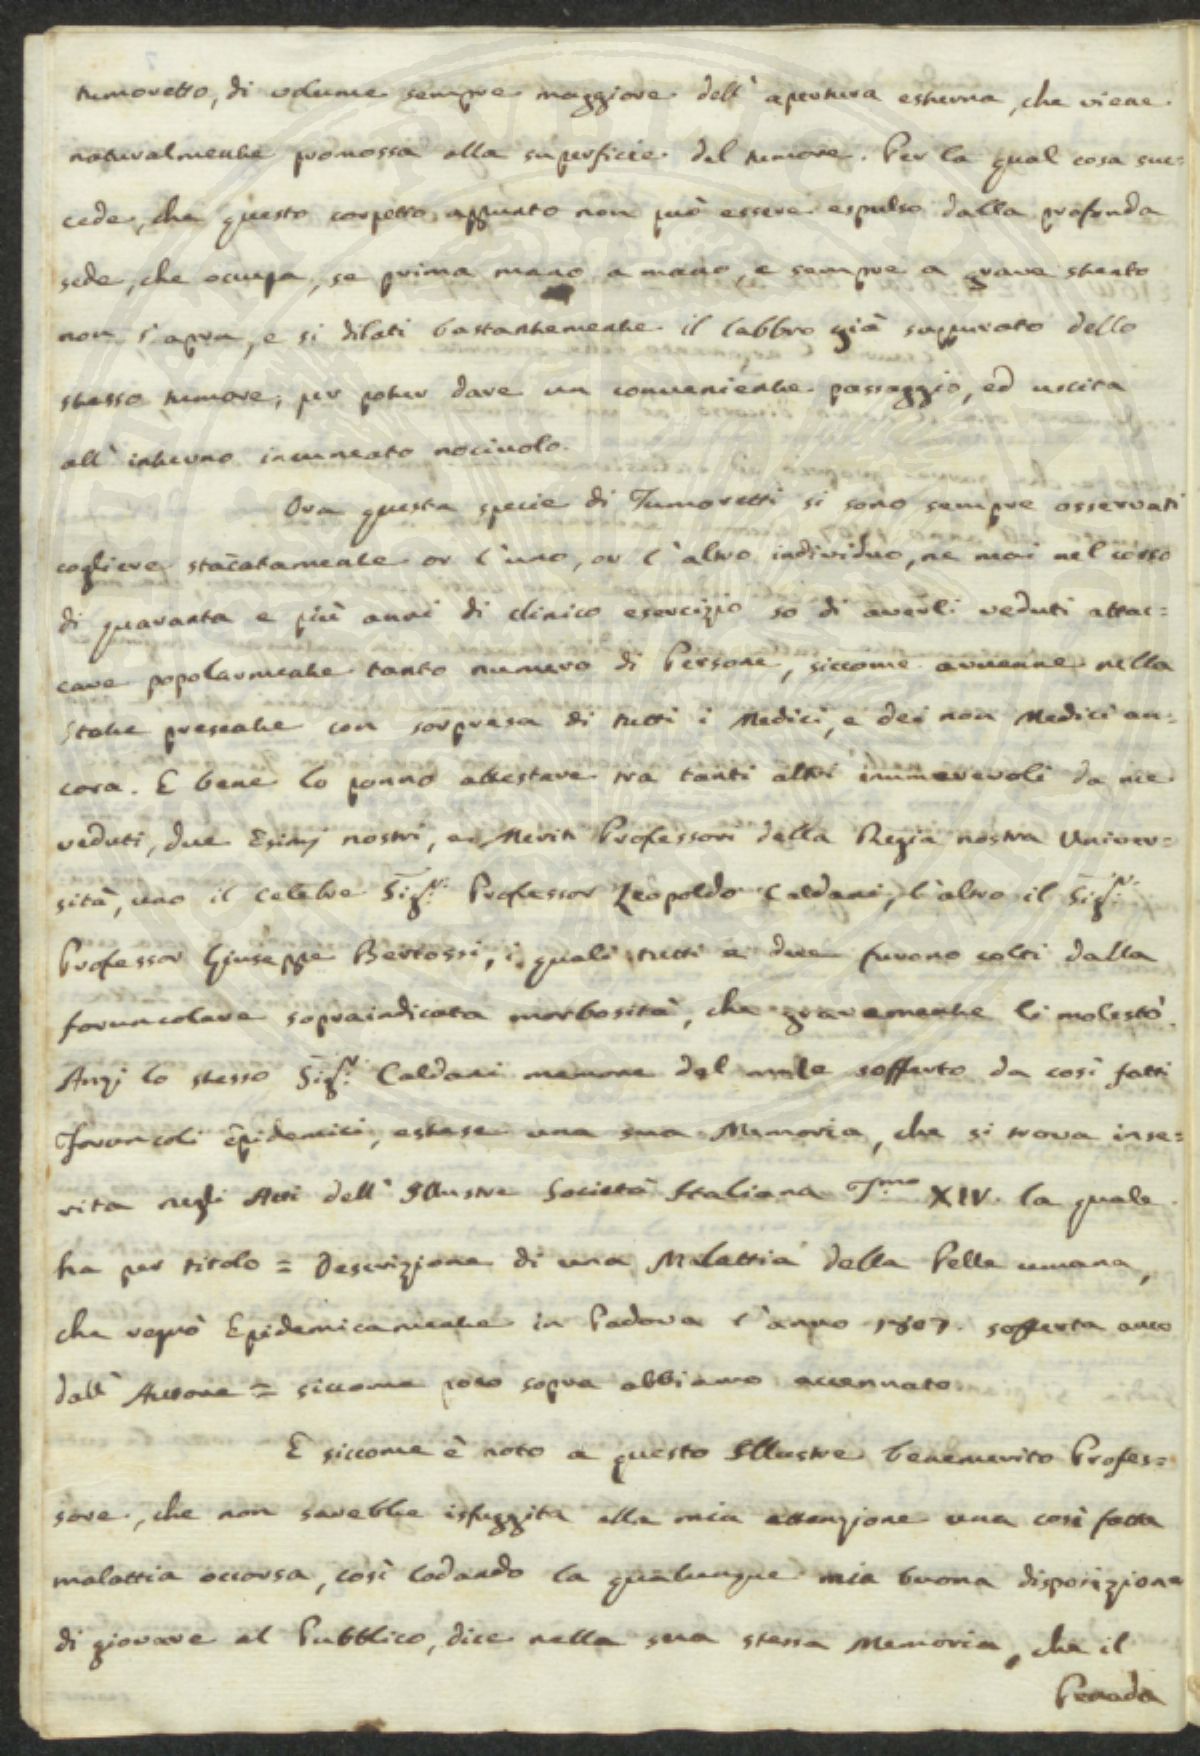 tumoretto, di volume sempre maggiore dell' apertura esterna, che viene
naturalmente promossa alla superficie del tumore. Per la qual cosa suc=
cede, che questo corpetto appunto non può essere espulso dalla profonda
sede, che occupa, se prima mano a mano, e sempre a grave stento
non s'apra, e si dilati bastantemente il labbro già suppurato dello
stesso tumore, per poter dare un conveniente passaggio, ed uscita
all' interno incuneato nocivolo.
Ora questa specie di Tumoretti si sono sempre osservati
cogliere staccatamente or l'uno, or l'altro individuo, ne mai nel corso
di quaranta e più anni di clinico esercizio so di averli veduti attac=
care popolarmente tanto numero di Persone, siccome avvenne nella
State presente con sorpresa di tutti i Medici, e dei non Medici an=
cora. E bene lo ponno attestare tra tanti altri innumerevoli da me
veduti, due Esimj nostri, e Meriti Professori della Regia nostra Univer=
sità, uno il celebre Sig.r Professor Leopoldo Caldani, l'altro il Sig.r
Professor Giuseppe Bertossi, i quali tutti e due furono colti dalla
foruncolare sopraindicata morbosità, che gravemente li molestò.
Anzi lo stesso Sig.r Caldani memore del male sofferto da così fatti
Foruncoli Epidemici, estese una sua Memoria, che si trova inse=
rita negli Atti dell' Illustre Società Italiana T.mo XIV. la quale
ha per titolo = Descrizione di una Malattia della Pelle umana,
che regnò Epidemicamente in Padova l'anno 1807. sofferta anco
dall' Autore = siccome poco sopra abbiamo accennato.
E siccome è noto a questo Illustre benemerito Profes=
sore, che non sarebbe isfuggita alla mia attenzione una così fatta
malattia occorsa, così lodando la qualunque mia buona disposizione
di giovare al Pubblico, dice nella sua stessa Memoria, che il
Penada